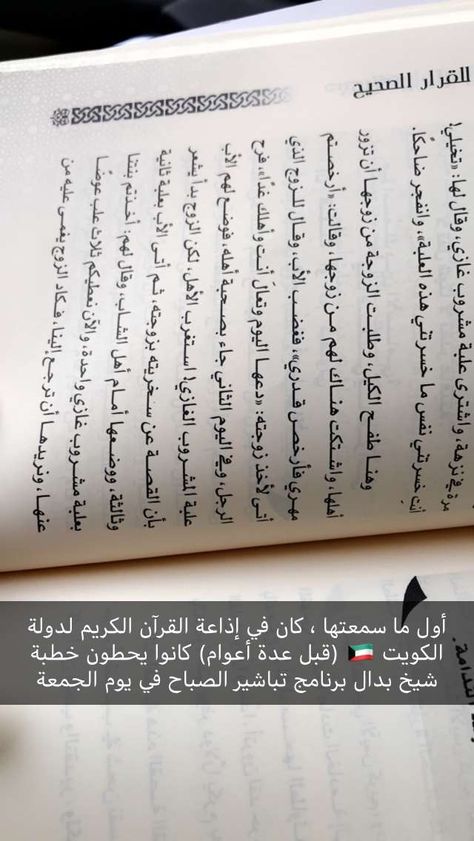 للقرار الصحيح
مرة في نزهة، واشترى علبة مشروب غازي، وقال لها: «تخيلي!
أنتِ خسرتني نفس ما خسرتني هذه العلبة»، وانفجر ضاحكًا.
وهنا طفح الكيل، وطلبت الزوجة من زوجها أن تزور
أهلها، واشتكت هناك لهم من زوجها، وقالت: «أرخصتم
مهري فأرخص قدري»، فغضب الأب، وقال للزوج الذي
أتى لأخذ زوجته: «دعها اليوم وتعالَ أنت وأهلك غدًا»، فرح
الرجل، وفي اليوم الثاني جاء بصحبة أهله، فوضع لهم الأب
علبة المشروب الغازي! استغرب الأهل، لكن الزوج بدأ يشعر
بأن القصة عن سخريته بزوجته، ثم أتى الأب بعلبة ثانية
وثالثة، ووضعها أمام أهل الشاب، وقال لهم: أخذتم بنتنا
بعلبة مشروب غازي واحدة، والآن نعطيكم ثلاث علب عوضًا
عنها، ونريدها أن ترجع إلينا، فكاد الزوج يغمى عليه من
أول ما سمعتها ، كان في إذاعة القرآن الكريم لدولة
الكويت 🇰🇼 (قبل عدة أعوام) كانوا يحطون خطبة
شيخ بدال برنامج تباشير الصباح في يوم الجمعة